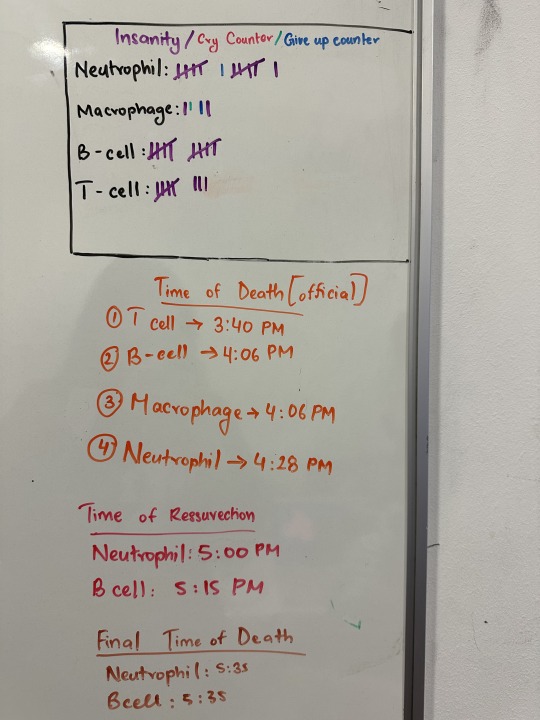 Insanity/Cry Counter/Give up counter
Neutrophil: 卌 | 卌 |
Macrophage: ||||
B-cell: 卌 卌
T-cell: 卌 |||
Time of Death [official]
① T cell → 3:40 PM
② B-cell → 4:06 PM
③ Macrophage → 4:06 PM
④ Neutrophil → 4:28 PM
Time of Ressuvection
Neutrophil: 5:00 PM
B cell: 5:15 PM
Final Time of Death
Neutrophil: 5:35
Bcell: 5:35